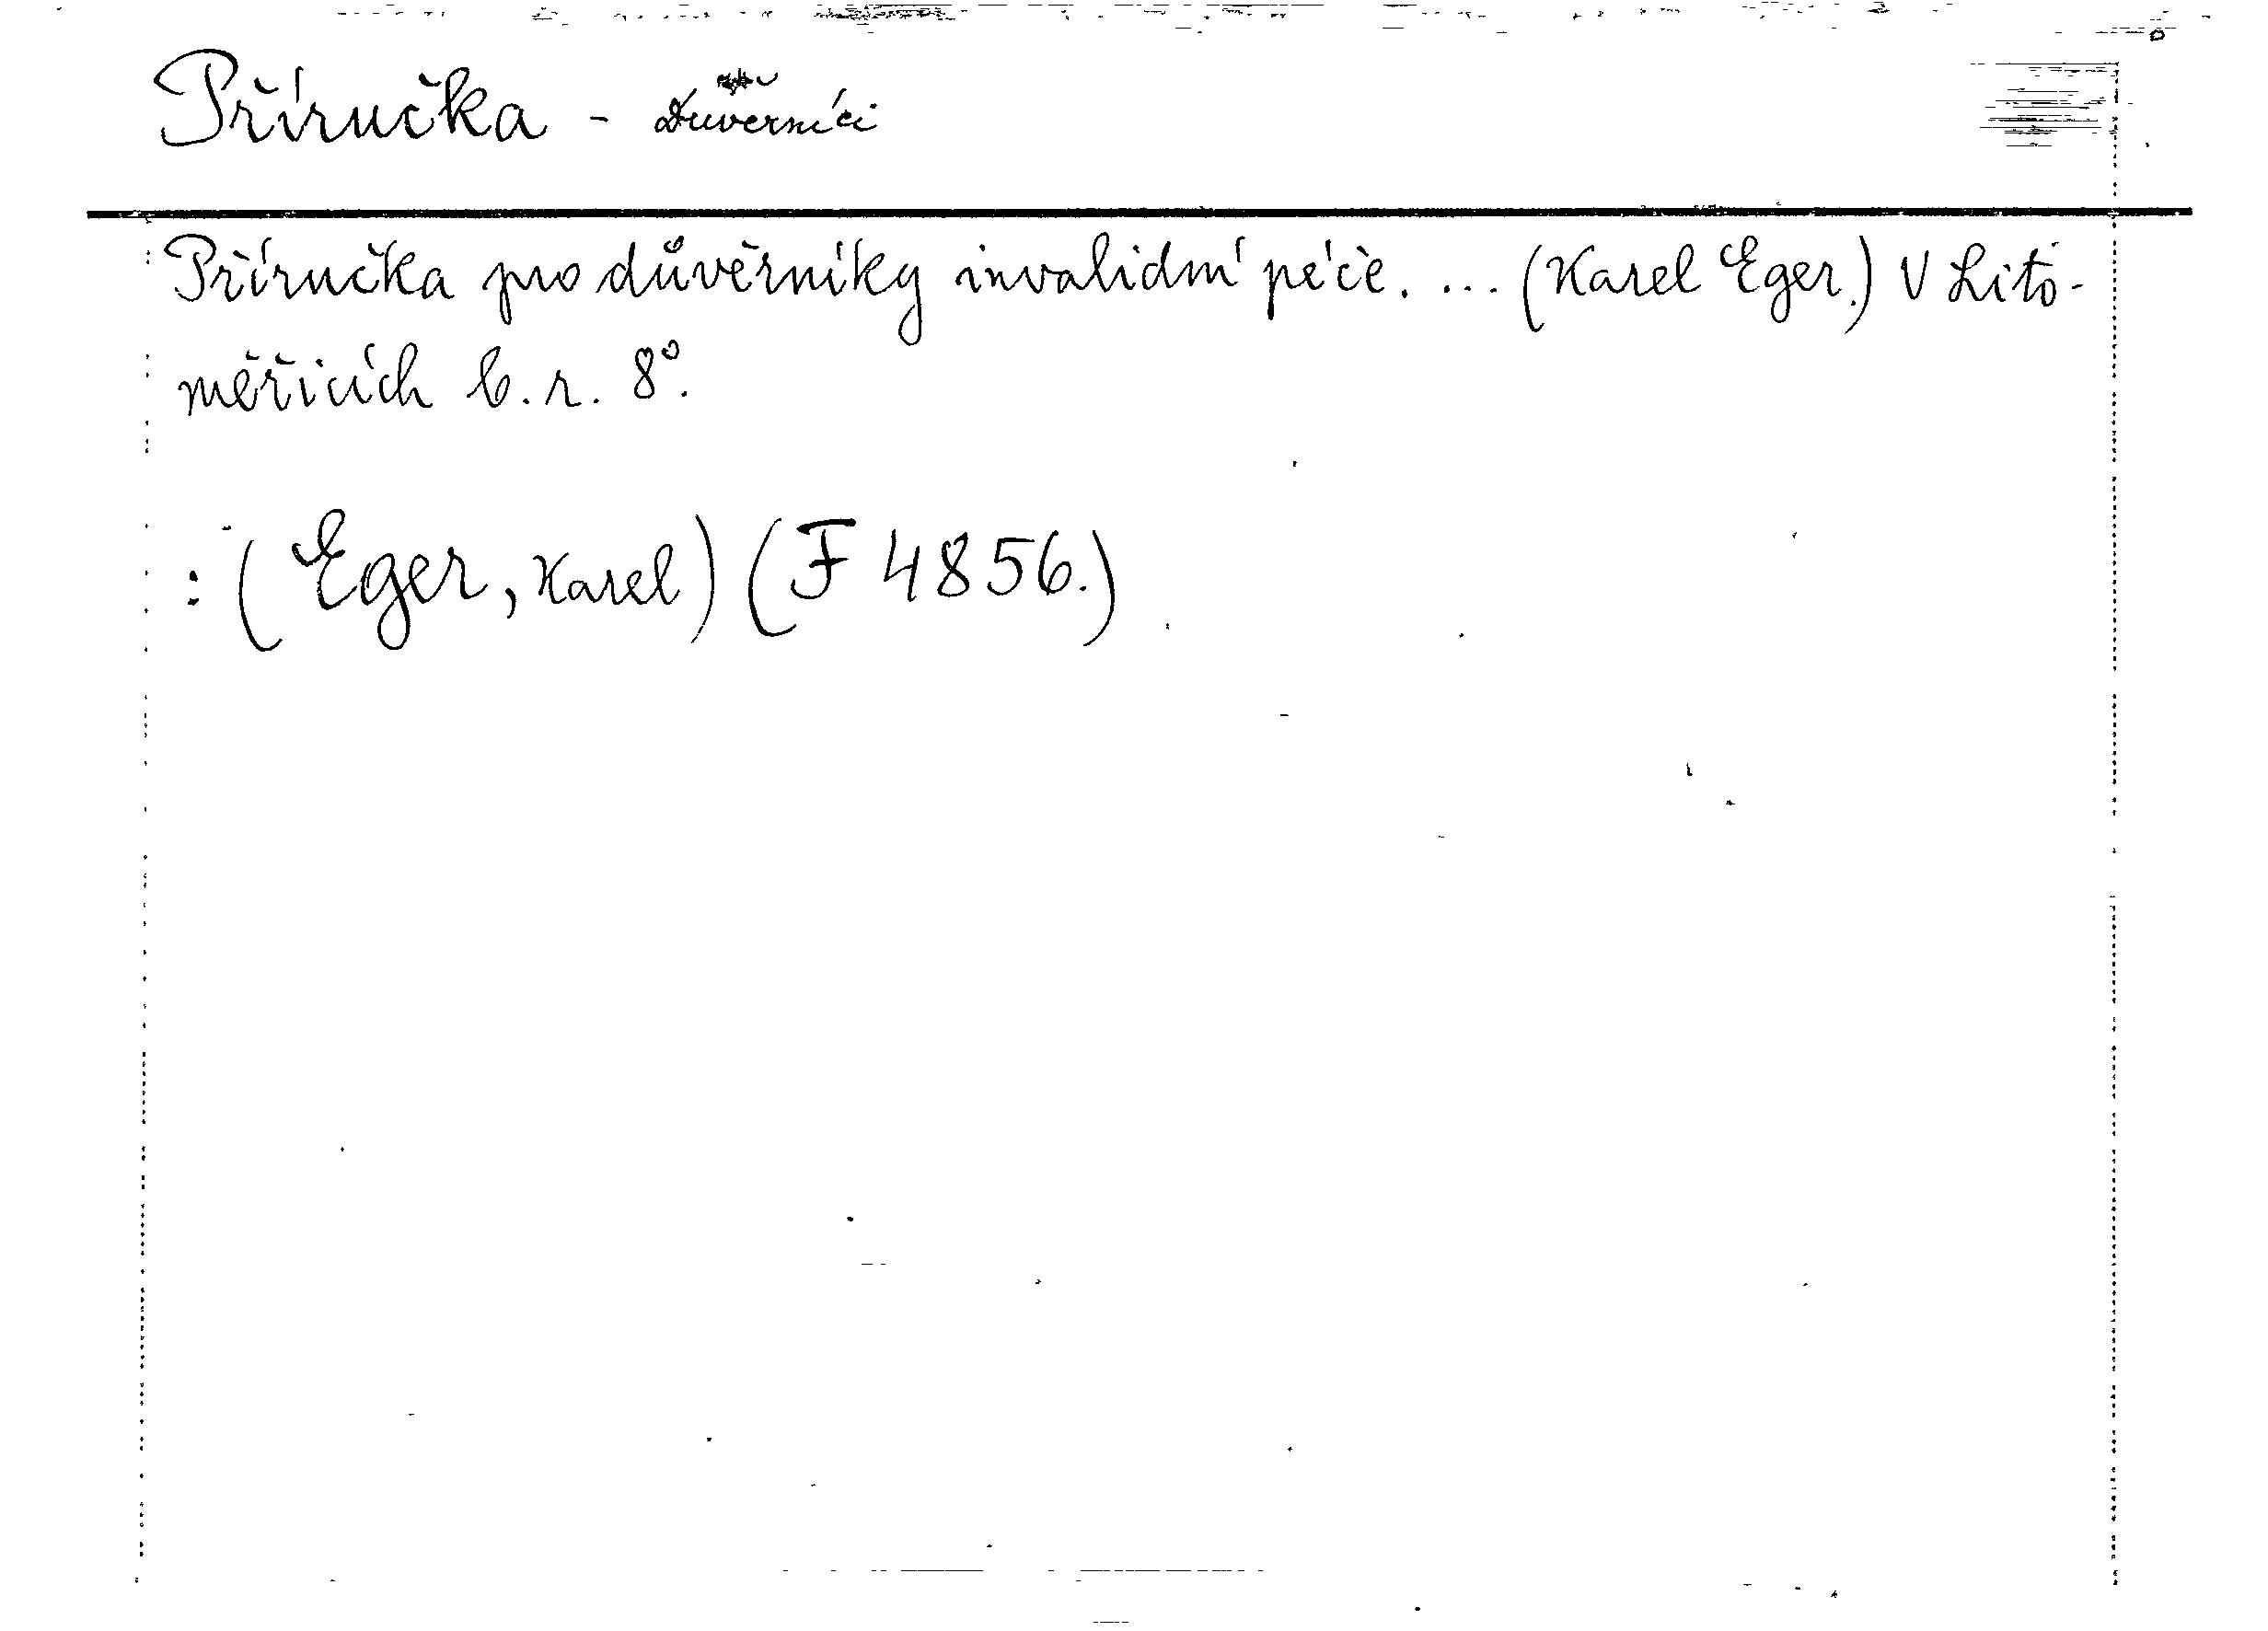 Příručka - Důvěrníci
Příručka pro důvěrníky invalidní péče. ... (Karel Eger.) V Lito-
měřicích b. r. 8°.
: (Eger, Karel) (F 4856.)